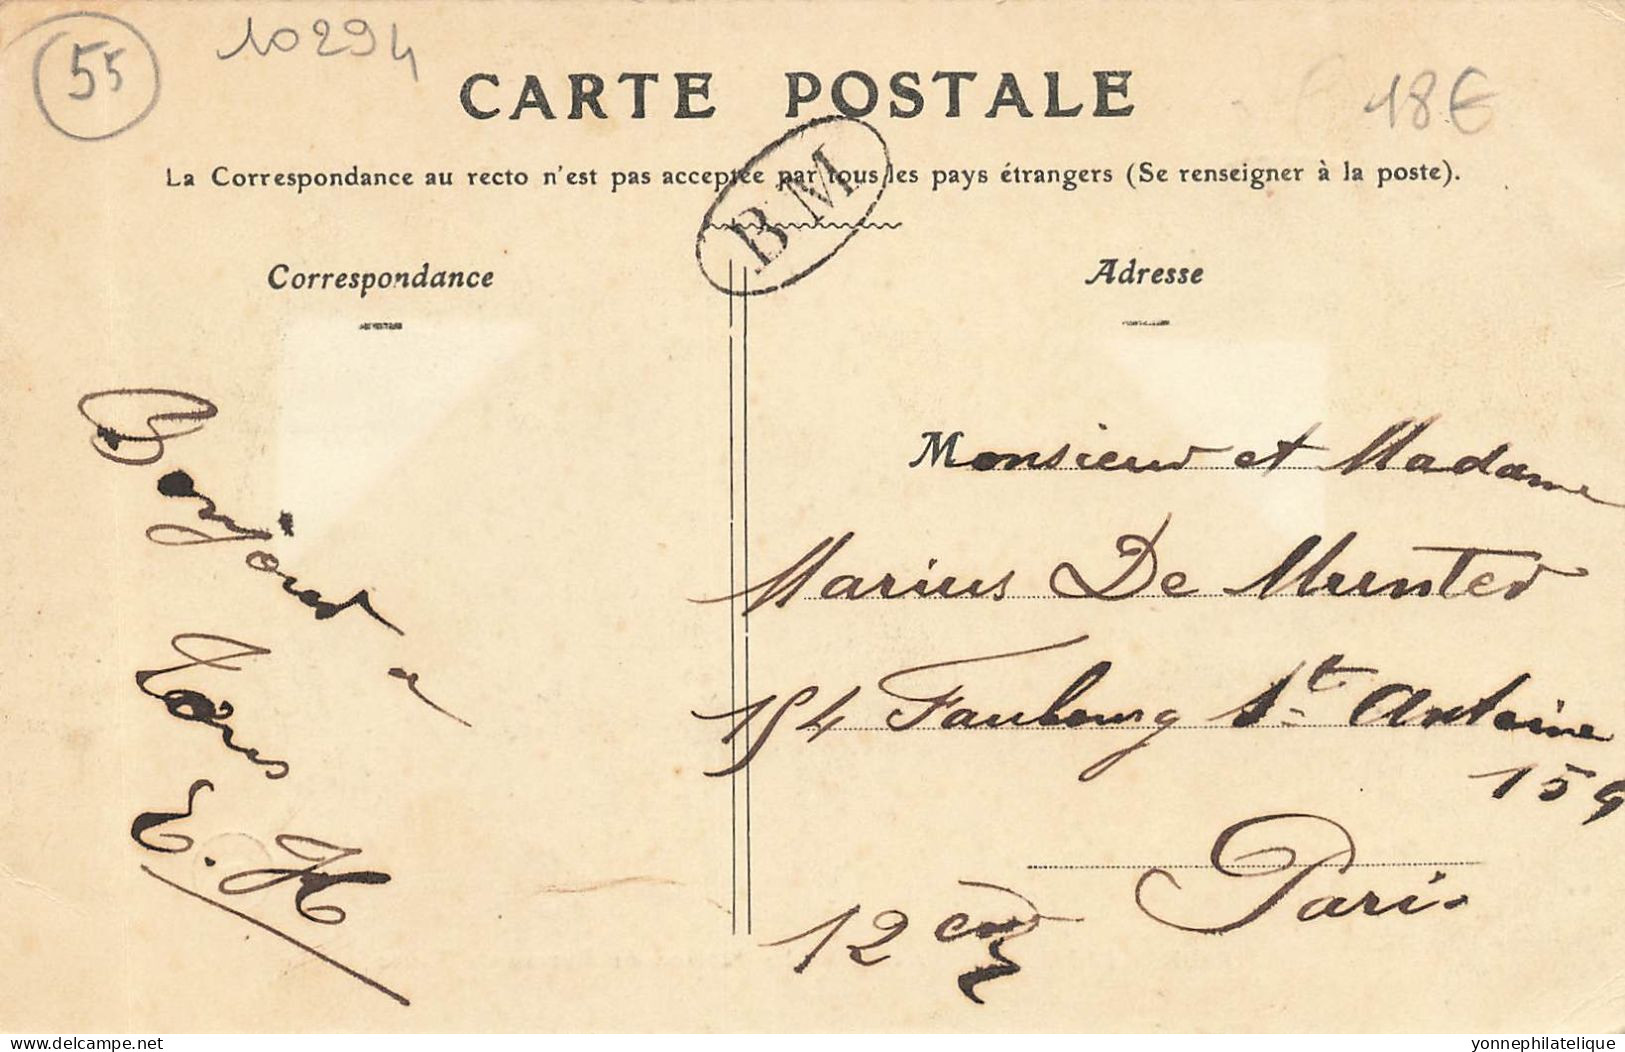 55
10294
18€
CARTE POSTALE
La Correspondance au recto n'est pas acceptée par tous les pays étrangers (Se renseigner à la poste).
BM
Correspondance
Adresse
Bonjour a
Tous
E. H
Monsieur et Madame
Marius De Munter
154 Faubourg St Antoine
159
Paris
12 em
delcampe.net
yonnephilatelique